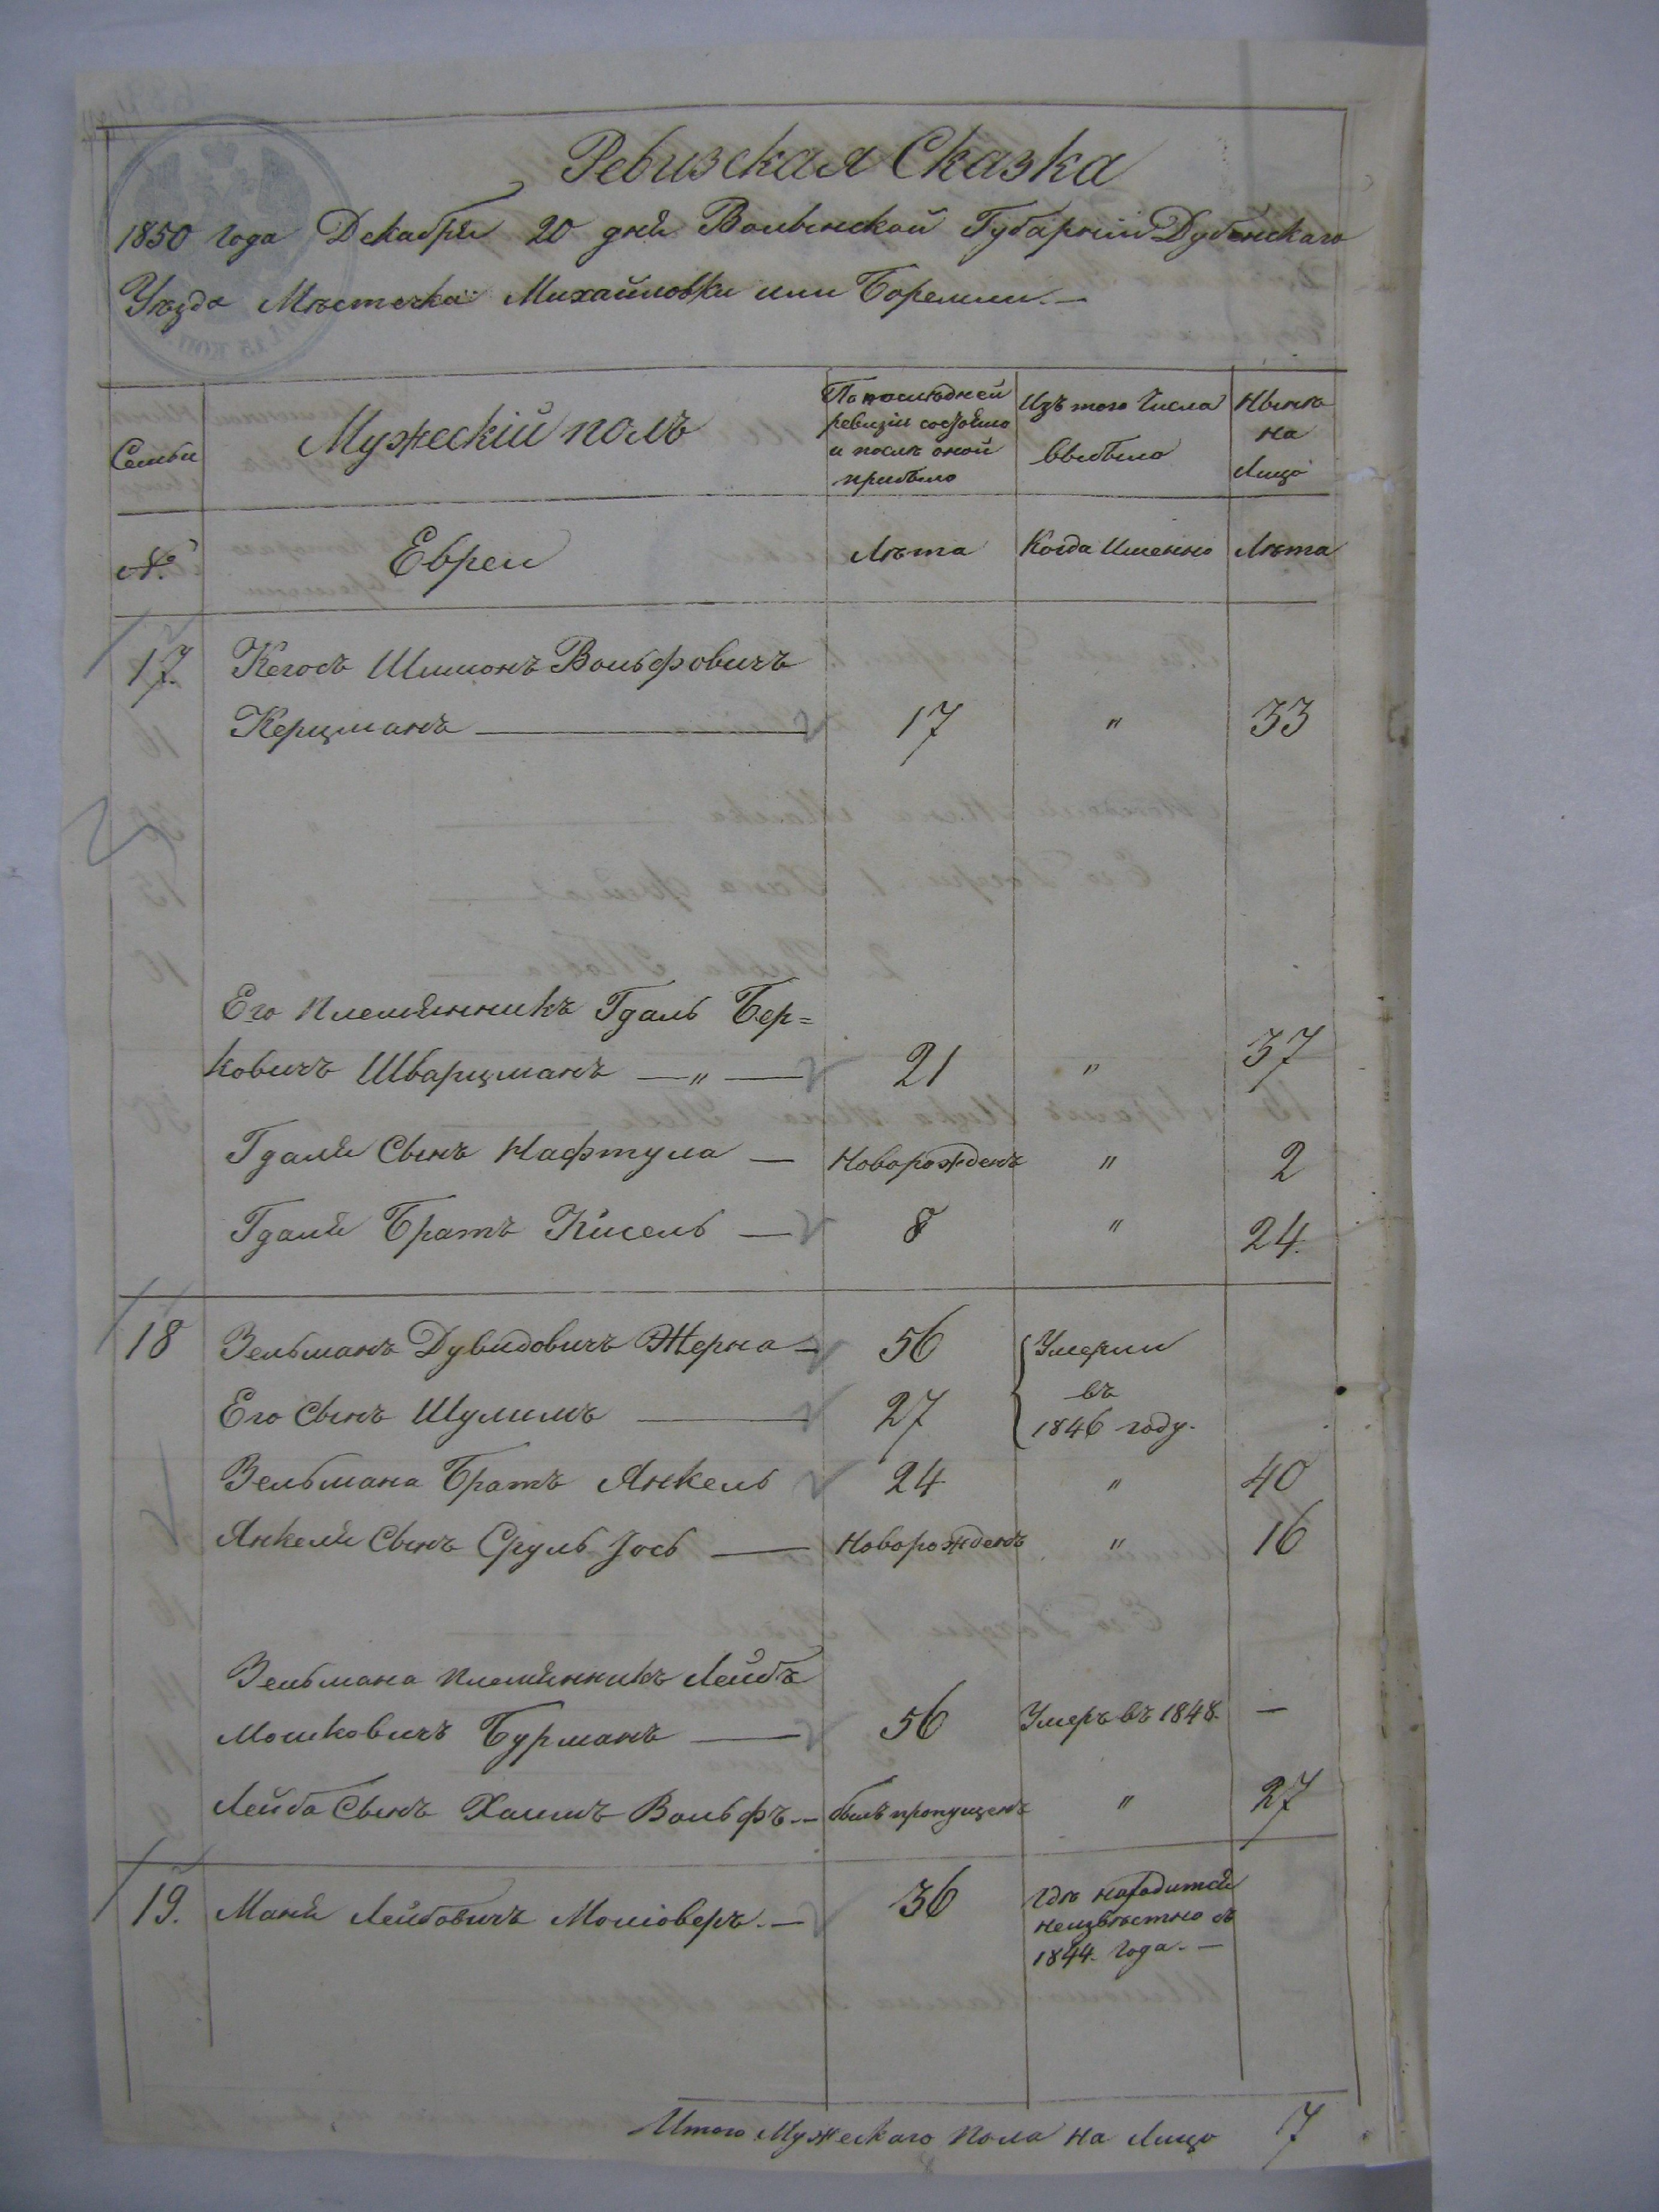 Ревизская Сказка
1850 года Декабря 20 дня Волынской Губерніи Дубенскаго
Уѣзда Мѣстечка Михайловки или Боремли.—
Семьи
Мужескій полъ
По послѣдней
ревизіи состояло
и послѣ оной
прибыло
Изъ того Числа
выбыло
Нынѣ
на
Лицо
№
Евреи
Лѣта
Когда Именно
Лѣта
17.
Кегосъ Шимонъ Вольфовичъ
Керцманъ — 17 " 33
Его Племянникъ Гдаль Бер=
ковичъ Шварцманъ —"— 21 " 37
Гдаля Сынъ Нафтула — Новорожденъ " 2
Гдаля Братъ Кисель — 8 " 24.
18 Зельманъ Дувидовичъ Жерна — 56 Умерли
Его Сынъ Шулимъ — 27 въ
1846 году.
Зельмана Братъ Янкель 24 " 40
Янкеля Сынъ Сруль Іось — Новорожденъ " 16
Зельмана Племянникъ Лейбъ
Мошковичъ Бурманъ — 56 Умеръ въ 1848. —
Лейба Сынъ Хаимъ Вольфъ.— былъ пропущенъ " 27
19. Маня Лейбовичъ Моліоверъ.— 36 Гдѣ находится
неизвѣстно съ
1844. Года.—
Итого Мужескаго пола на Лицо 7